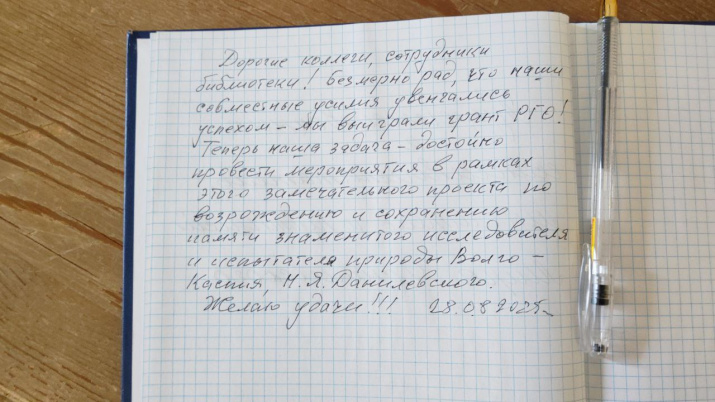 Дорогие коллеги, сотрудники
библиотеки! Безмерно рад, что наши
совместные усилия увенчались
успехом – мы выиграли грант РГО!
Теперь наша задача – достойно
провести мероприятия в рамках
этого замечательного проекта по
возрождению и сохранению
памяти знаменитого исследователя
и испытателя природы Волго –
Каспия, Н.Я. Данилевского.
Желаю удачи!!! 28.08.2025